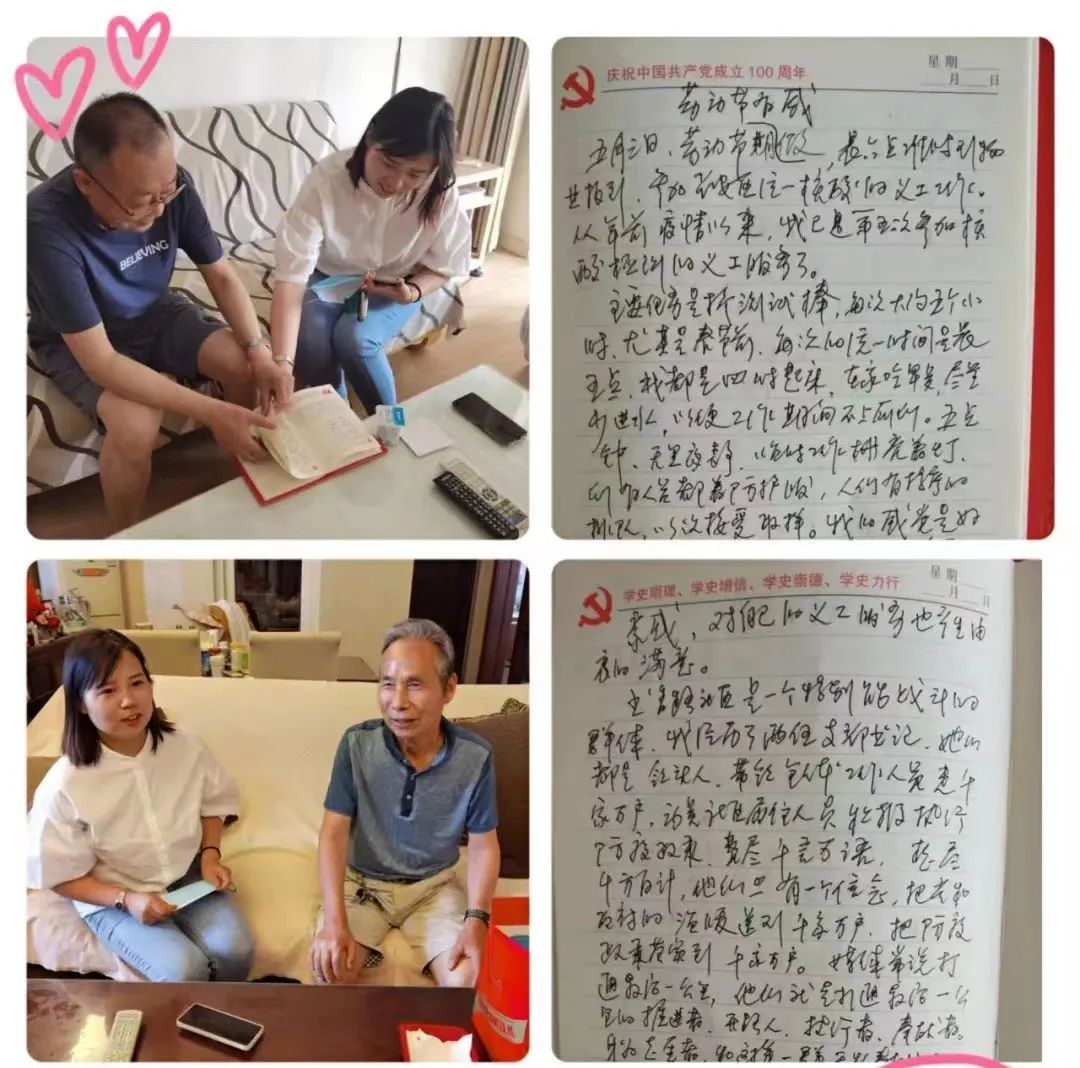 BELIEVING
庆祝中国共产党成立 100 周年
星期
月 日
劳动节有感
五月三日，劳动节期假，晨六点准时到物
业报到，参加区统一核酸的义工工作。
从年前疫情以来，我已是第五次参加核
酸检测的义工服务了。
主要任务是拆测试棒，每次大约五个小
时，尤其是春节前，每次的统一时间是晨
五点，我都是四时起床，在家吃早点，尽量
少进水，以便工作期间不上厕所。五点
钟，天黑夜静，临时工作棚亮着灯，
所有人员都着防护服，人们有秩序的
排队，以次接受取样。我的感觉是好
学史明理、学史增信、学史崇德、学史力行
星期
月 日
感，对自己的义工服务也产生由
衷的满意。
社区是一个特别能战斗的
群体，我经历了两任支部书记，她们
都是领头人，带领全体工作人员走千
家万户，动员社区居住人员积极执行
防疫政策，费尽千言万语，想尽
千方百计，他们只有一个信念，把党和
政府的温暖送到千家万户，把防疫
政策落实到千家万户。媒体常说打
通最后一公里，他们就是打通最后一公
里的推进者，开路人，执行者，奉献者。